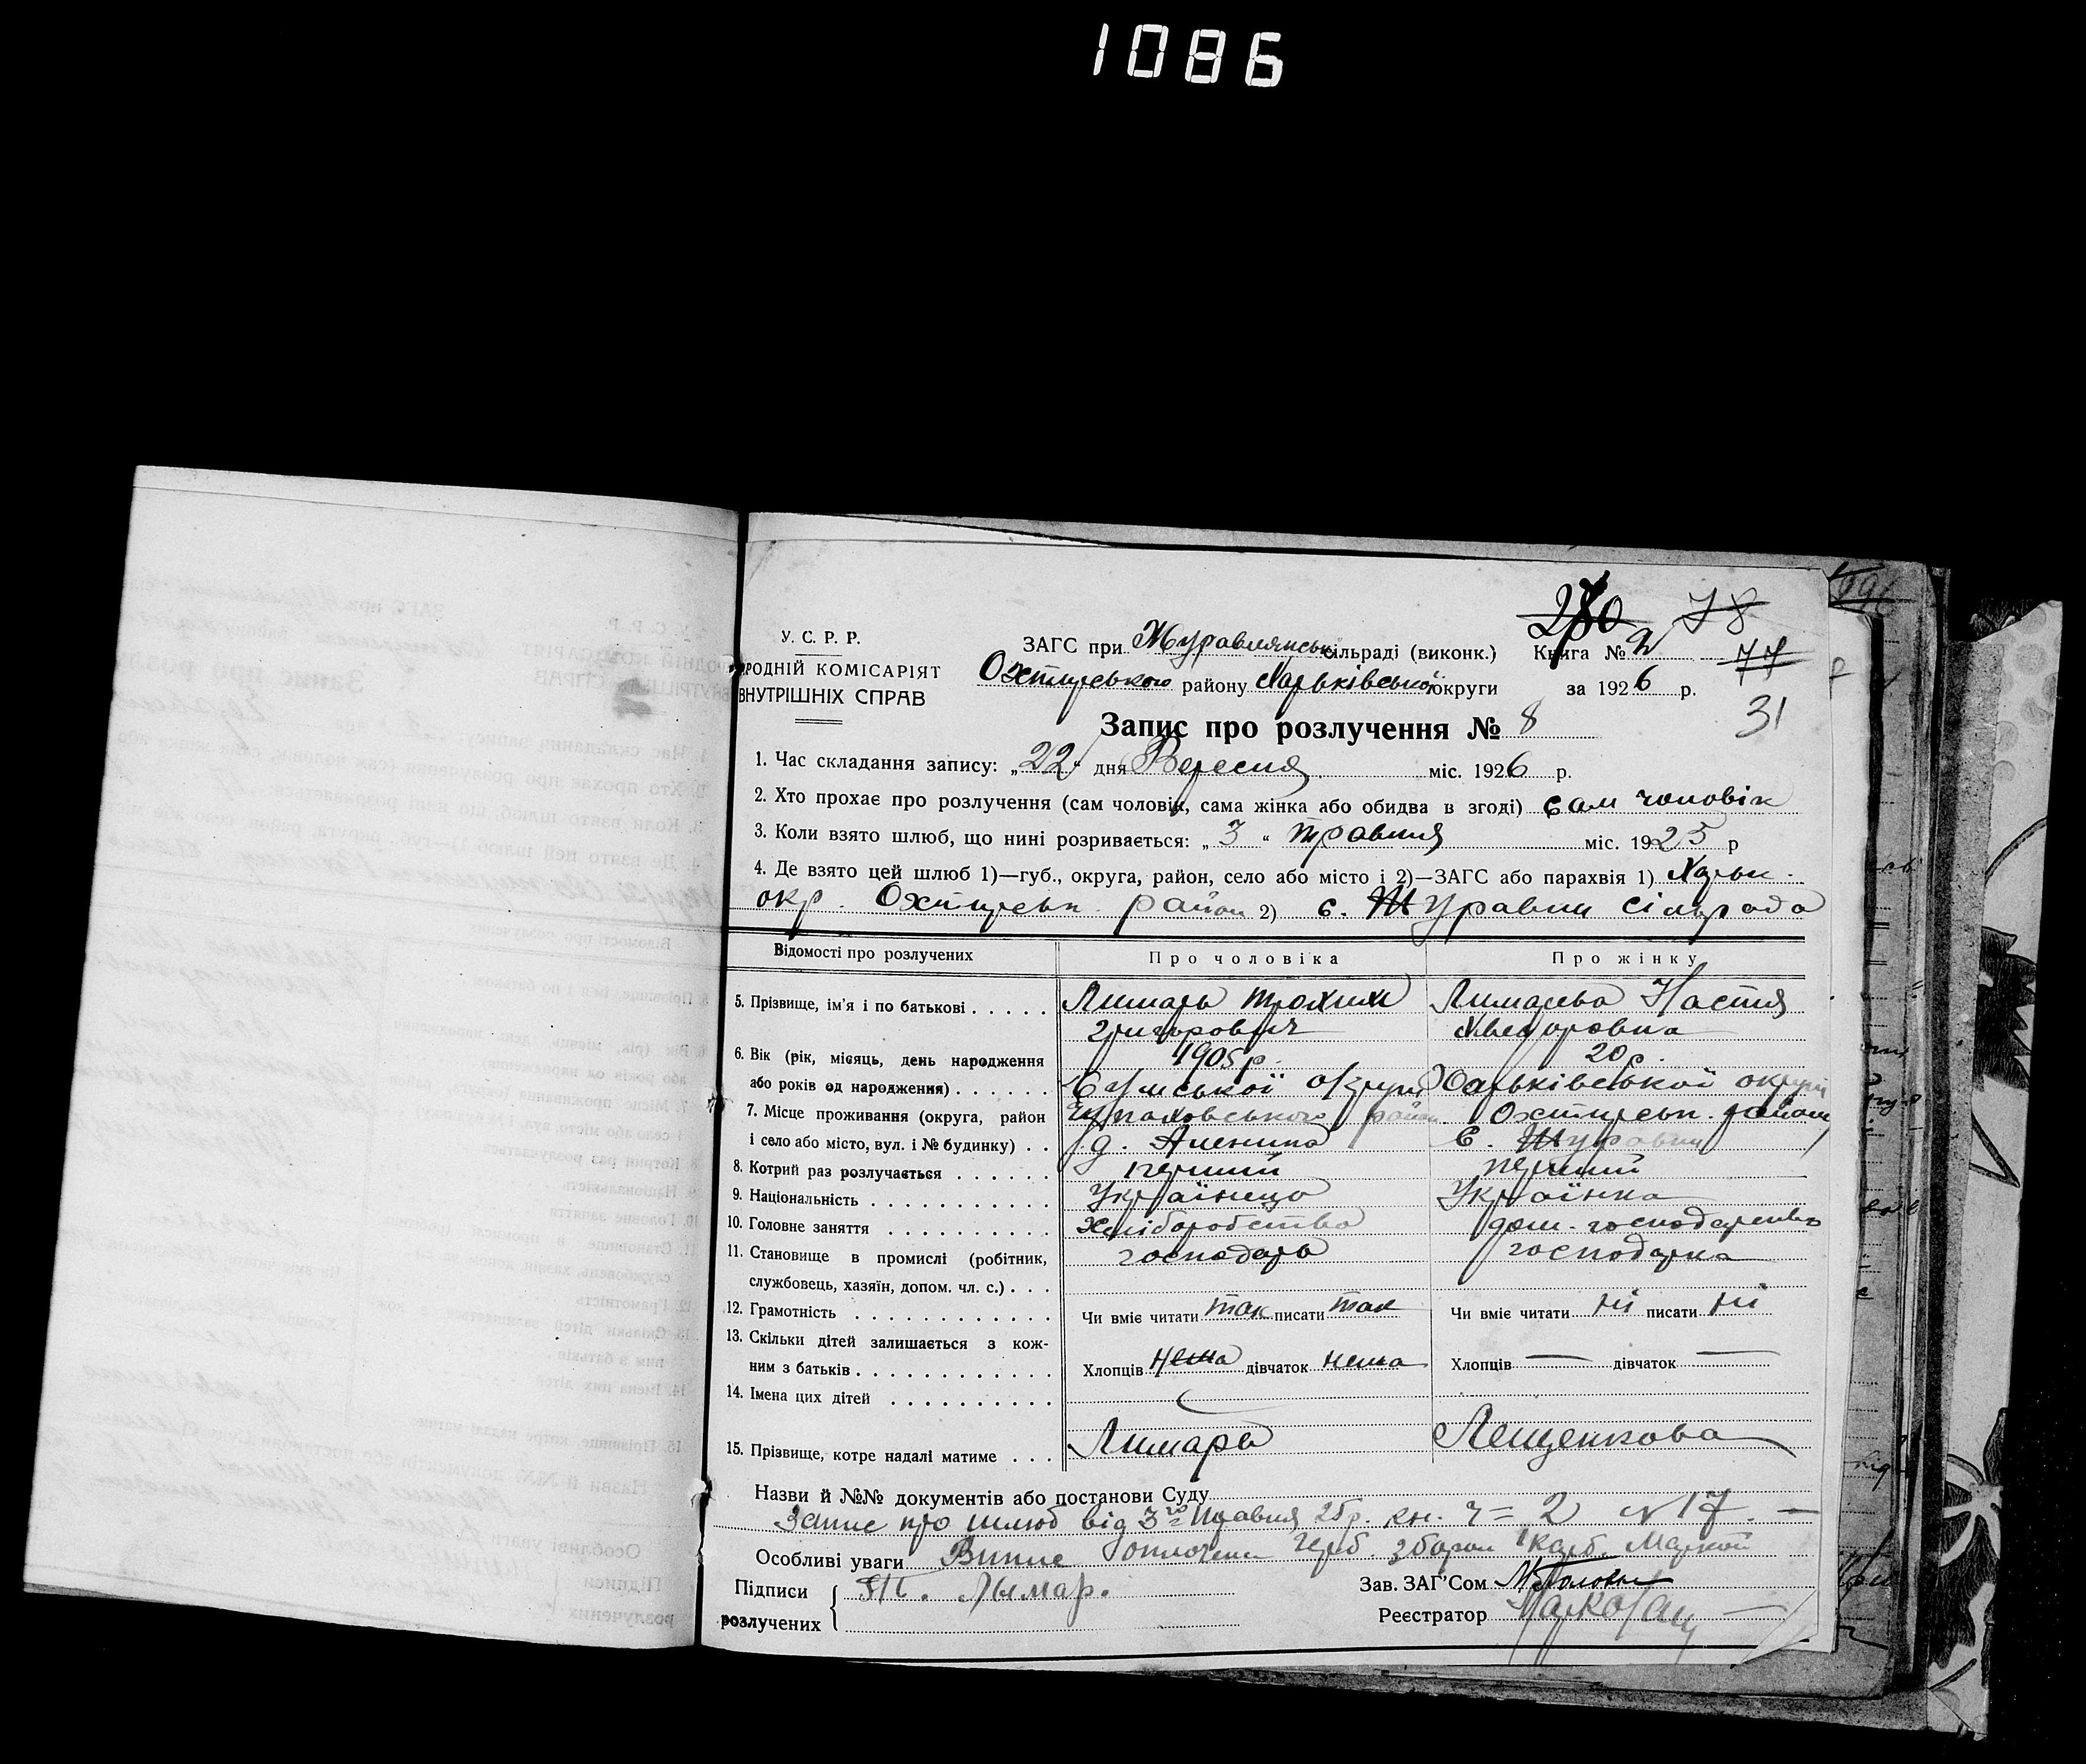 1086
280 78
У. С. Р. Р.
ЗАГС при Журавлянськ. сільраді (виконк.) Книга № 2
77
РОДНІЙ КОМІСАРІЯТ
Охтирського району Харьківської округи за 1926 р.
ВНУТРІШНІХ СПРАВ
31
Запис про розлучення № 8
1. Час складання запису: „22“ дня Вересня міс. 1926 р.
2. Хто прохає про розлучення (сам чоловік, сама жінка або обидва в згоді) сам чоловік
3. Коли взято шлюб, що нині розривається: „3“ травня міс. 1925 р
4. Де взято цей шлюб 1)—губ., округа, район, село або місто і 2)—ЗАГС або парахвія 1) Харьк.
окр. Охтирськ. район 2) с. Журавни сільрада
Відомості про розлучених Про чоловіка Про жінку
5. Прізвище, ім'я і по батькові . . . . . Лимарь Трохим Лимарева Настя
Григорович Хведоровна
6. Вік (рік, місяць, день народження 1905р. 20р.
або років од народження) . . . . . . Сумської округи Харьківської округи
7. Місце проживання (округа, район район Охтирськ. район
і село або місто, вул. і № будинку) . . с. Журавни
8. Котрий раз розлучається . . . . . . перший перший
9. Національність . . . . . . . . . . . Українець Українка
10. Головне заняття . . . . . . . . . . Хліборобство дом. господарство
11. Становище в промислі (робітник, господарь господарка
службовець, хазяїн, допом. чл. с.) . . .
12. Грамотність . . . . . . . . . . . . Чи вміє читати так писати так Чи вміє читати ні писати ні
13. Скільки дітей залишається з кож-
ним з батьків . . . . . . . . . . . . Хлопців нема дівчаток нема Хлопців — дівчаток —
14. Імена цих дітей . . . . . . . . . .
15. Прізвище, котре надалі матиме . . . Лимарь Лещенкова
Назви й №№ документів або постанови Суду
Запис про шлюб від 3го Травня 25р. кн. ч = 2 № 17. —
Особливі уваги Випис оплочена герб. збором 1 карб. Маркой
Підписи Т. Лымар. Зав. ЗАГ'Сом
розлучених Реєстратор